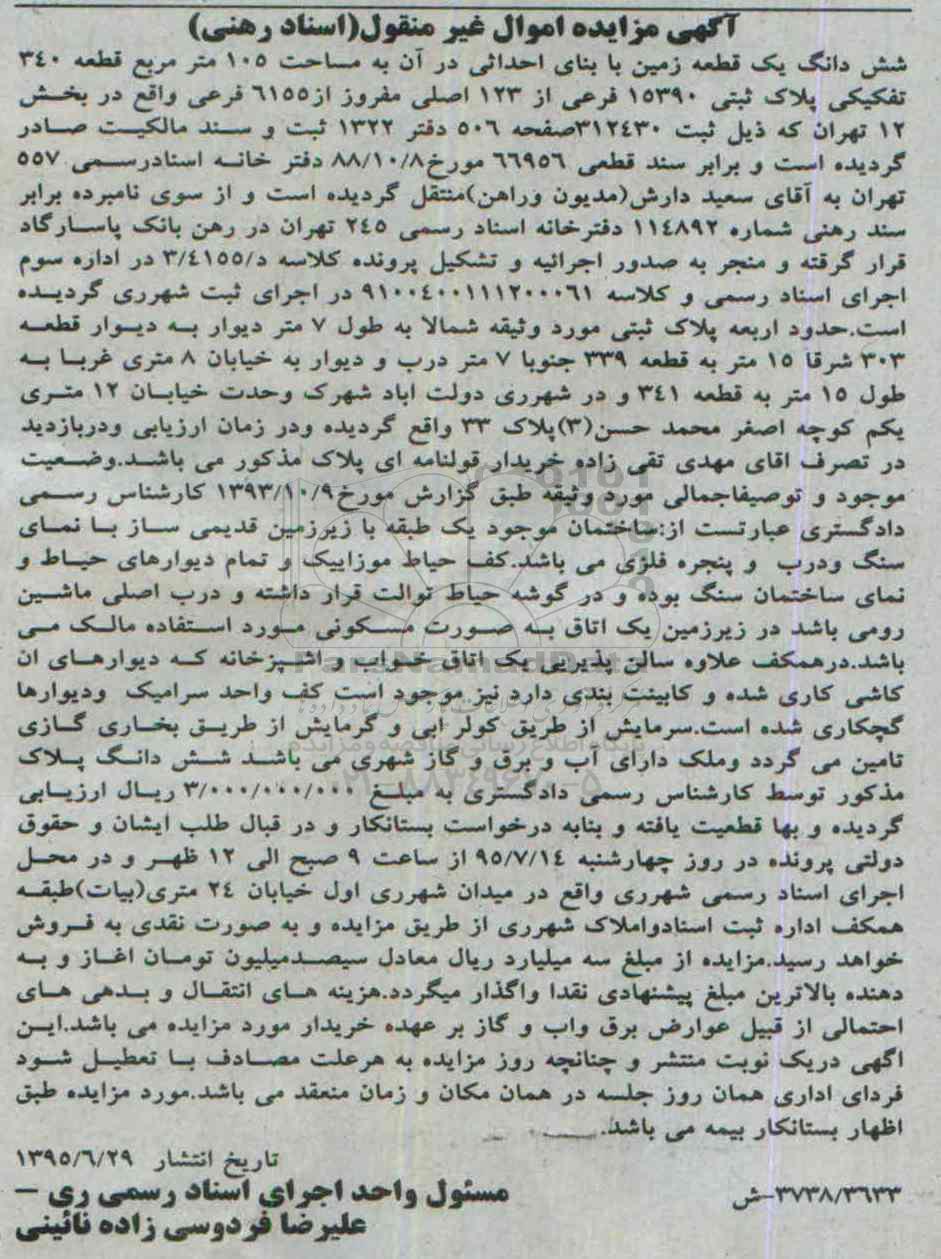 آگهی مزایده اموال غیر منقول(اسناد رهنی)
شش دانگ یک قطعه زمین با بنای احداثی در آن به مساحت ۱۰۵ متر مربع قطعه ۳۴۰
تفکیکی پلاک ثبتی ۱۵۳۹۰ فرعی از ۱۲۳ اصلی مفروز از۶۱۵۵ فرعی واقع در بخش
۱۲ تهران که ذیل ثبت ۳۱۲۴۳۰صفحه ۵۰۶ دفتر ۱۳۲۲ ثبت و سند مالکیت صادر
گردیده است و برابر سند قطعی ۶۶۹۵۶ مورخ۸۸/۱۰/۸ دفتر خانه اسنادرسمی ۵۵۷
تهران به آقای سعید دارش(مدیون وراهن)منتقل گردیده است و از سوی نامبرده برابر
سند رهنی شماره ۱۱٤۸۹۲ دفترخانه اسناد رسمی ۲٤٥ تهران در رهن بانک پاسارگاد
قرار گرفته و منجر به صدور اجرائیه و تشکیل پرونده کلاسه د/۳/٤۱۵۵ در اداره سوم
اجرای اسناد رسمی و کلاسه ۹۱۰۰٤۰۰۱۱۱۲۰۰۰۶۱ در اجرای ثبت شهرری گردیده
است.حدود اربعه پلاک ثبتی مورد وثیقه شمالا به طول ۷ متر دیوار به دیوار قطعه
۳۰۳ شرقا ۱۵ متر به قطعه ۳۳۹ جنوبا ۷ متر درب و دیوار به خیابان ۸ متری غربا به
طول ۱۵ متر به قطعه ۳٤۱ و در شهرری دولت اباد شهرک وحدت خیابان ۱۲ متری
یکم کوچه اصغر محمد حسن(۳)پلاک ۳۳ واقع گردیده ودر زمان ارزیابی ودربازدید
در تصرف اقای مهدی تقی زاده خریدار قولنامه ای پلاک مذکور می باشد.وضعیت
موجود و توصیفاجمالی مورد وثیقه طبق گزارش مورخ۱۳۹۳/۱۰/۹ کارشناس رسمی
دادگستری عبارتست از:ساختمان موجود یک طبقه با زیرزمین قدیمی ساز با نمای
سنگ ودرب و پنجره فلزی می باشد.کف حیاط موزاییک و تمام دیوارهای حیاط و
نمای ساختمان سنگ بوده و در گوشه حیاط توالت قرار داشته و درب اصلی ماشین
رومی باشد در زیرزمین یک اتاق به صورت مسکونی مورد استفاده مالک می
باشد.درهمکف علاوه سالن پذیرایی یک اتاق خواب و اشپزخانه که دیوارهای ان
کاشی کاری شده و کابینت بندی دارد نیز موجود است کف واحد سرامیک ودیوارها
گچکاری شده است.سرمایش از طریق کولر ابی و گرمایش از طریق بخاری گازی
تامین می گردد وملک دارای آب و برق و گاز شهری می باشد شش دانگ پلاک
مذکور توسط کارشناس رسمی دادگستری به مبلغ ۳/۰۰۰/۰۰۰/۰۰۰ ریال ارزیابی
گردیده و بها قطعیت یافته و بنابه درخواست بستانکار و در قبال طلب ایشان و حقوق
دولتی پرونده در روز چهارشنبه ۹۵/۷/۱٤ از ساعت ۹ صبح الی ۱۲ ظهر و در محل
اجرای اسناد رسمی شهرری واقع در میدان شهرری اول خیابان ۲٤ متری(بیات)طبقه
همکف اداره ثبت اسنادواملاک شهرری از طریق مزایده و به صورت نقدی به فروش
خواهد رسید.مزایده از مبلغ سه میلیارد ریال معادل سیصدمیلیون تومان اغاز و به
دهنده بالاترین مبلغ پیشنهادی نقدا واگذار میگردد.هزینه های انتقال و بدهی های
احتمالی از قبیل عوارض برق واب و گاز بر عهده خریدار مورد مزایده می باشد.این
اگهی دریک نوبت منتشر و چنانچه روز مزایده به هرعلت مصادف با تعطیل شود
فردای اداری همان روز جلسه در همان مکان و زمان منعقد می باشد.مورد مزایده طبق
اظهار بستانکار بیمه می باشد.
تاریخ انتشار ۱۳۹۵/۶/۲۹
۳۷۳۸/۳۶۳۳-ش
مسئول واحد اجرای اسناد رسمی ری –
علیرضا فردوسی زاده نائینی
ParsNamadData
پایگاه اطلاع رسانی مناقصه و مزایده
۰۲۱-۸۸۳٤۹۶۷۰-۵